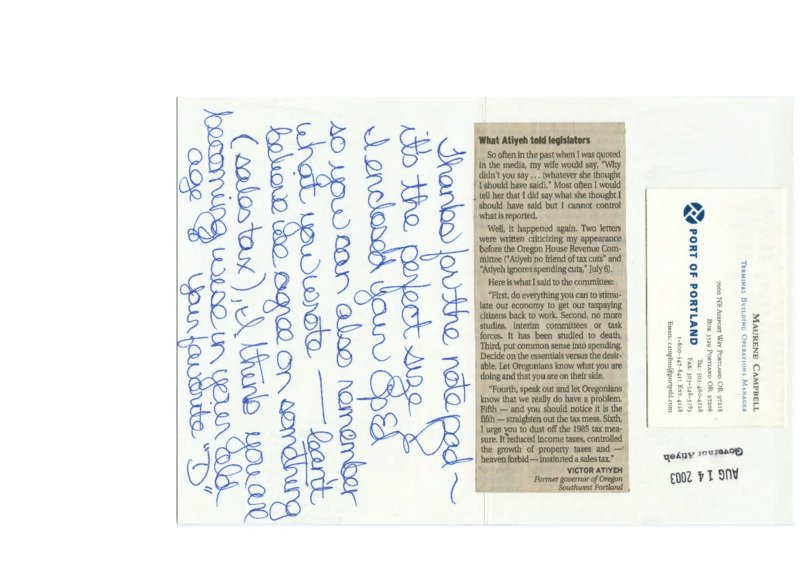 Thanks for the note pad ~
it's the perfect size
I enclosed your Op Ed
so you can also remember
what you wrote — last
believe we agree on something
(sales tax), I think you are
becoming wiser in your old
age your favorite "D"
What Atiyeh told legislators
So often in the past when I was quoted
in the media, my wife would say, "Why
didn't you say . . . (whatever she thought
I should have said)." Most often I would
tell her that I did say what she thought I
should have said but I cannot control
what is reported.
Well, it happened again. Two letters
were written criticizing my appearance
before the Oregon House Revenue Com-
mittee ("Atiyeh no friend of tax cuts" and
"Atiyeh ignores spending cuts," July 6).
Here is what I said to the committee:
"First, do everything you can to stimu-
late our economy to get our taxpaying
citizens back to work. Second, no more
studies, interim committees or task
forces. It has been studied to death.
Third, put common sense into spending.
Decide on the essentials versus the desir-
able. Let Oregonians know what you are
doing and that you are on their side.
"Fourth, speak out and let Oregonians
know that we really do have a problem.
Fifth — and you should notice it is the
fifth — straighten out the tax mess. Sixth,
I urge you to dust off the 1985 tax mea-
sure. It reduced income taxes, controlled
the growth of property taxes and —
heaven forbid — instituted a sales tax."
VICTOR ATIYEH
Former governor of Oregon
Southwest Portland
MAURENE CAMPBELL
TERMINAL BUILDING OPERATIONS MANAGER
7000 NE AIRPORT WAY PORTLAND OR 97218
BOX 3529 PORTLAND OR, 97208
TEL: 503-460-4128
FAX: 503-548-5783
1-800-547-8411 EXT. 4128
EMAIL: campbm@portptld.com
PORT OF PORTLAND
AUG 14 2003
Governor Atiyeh